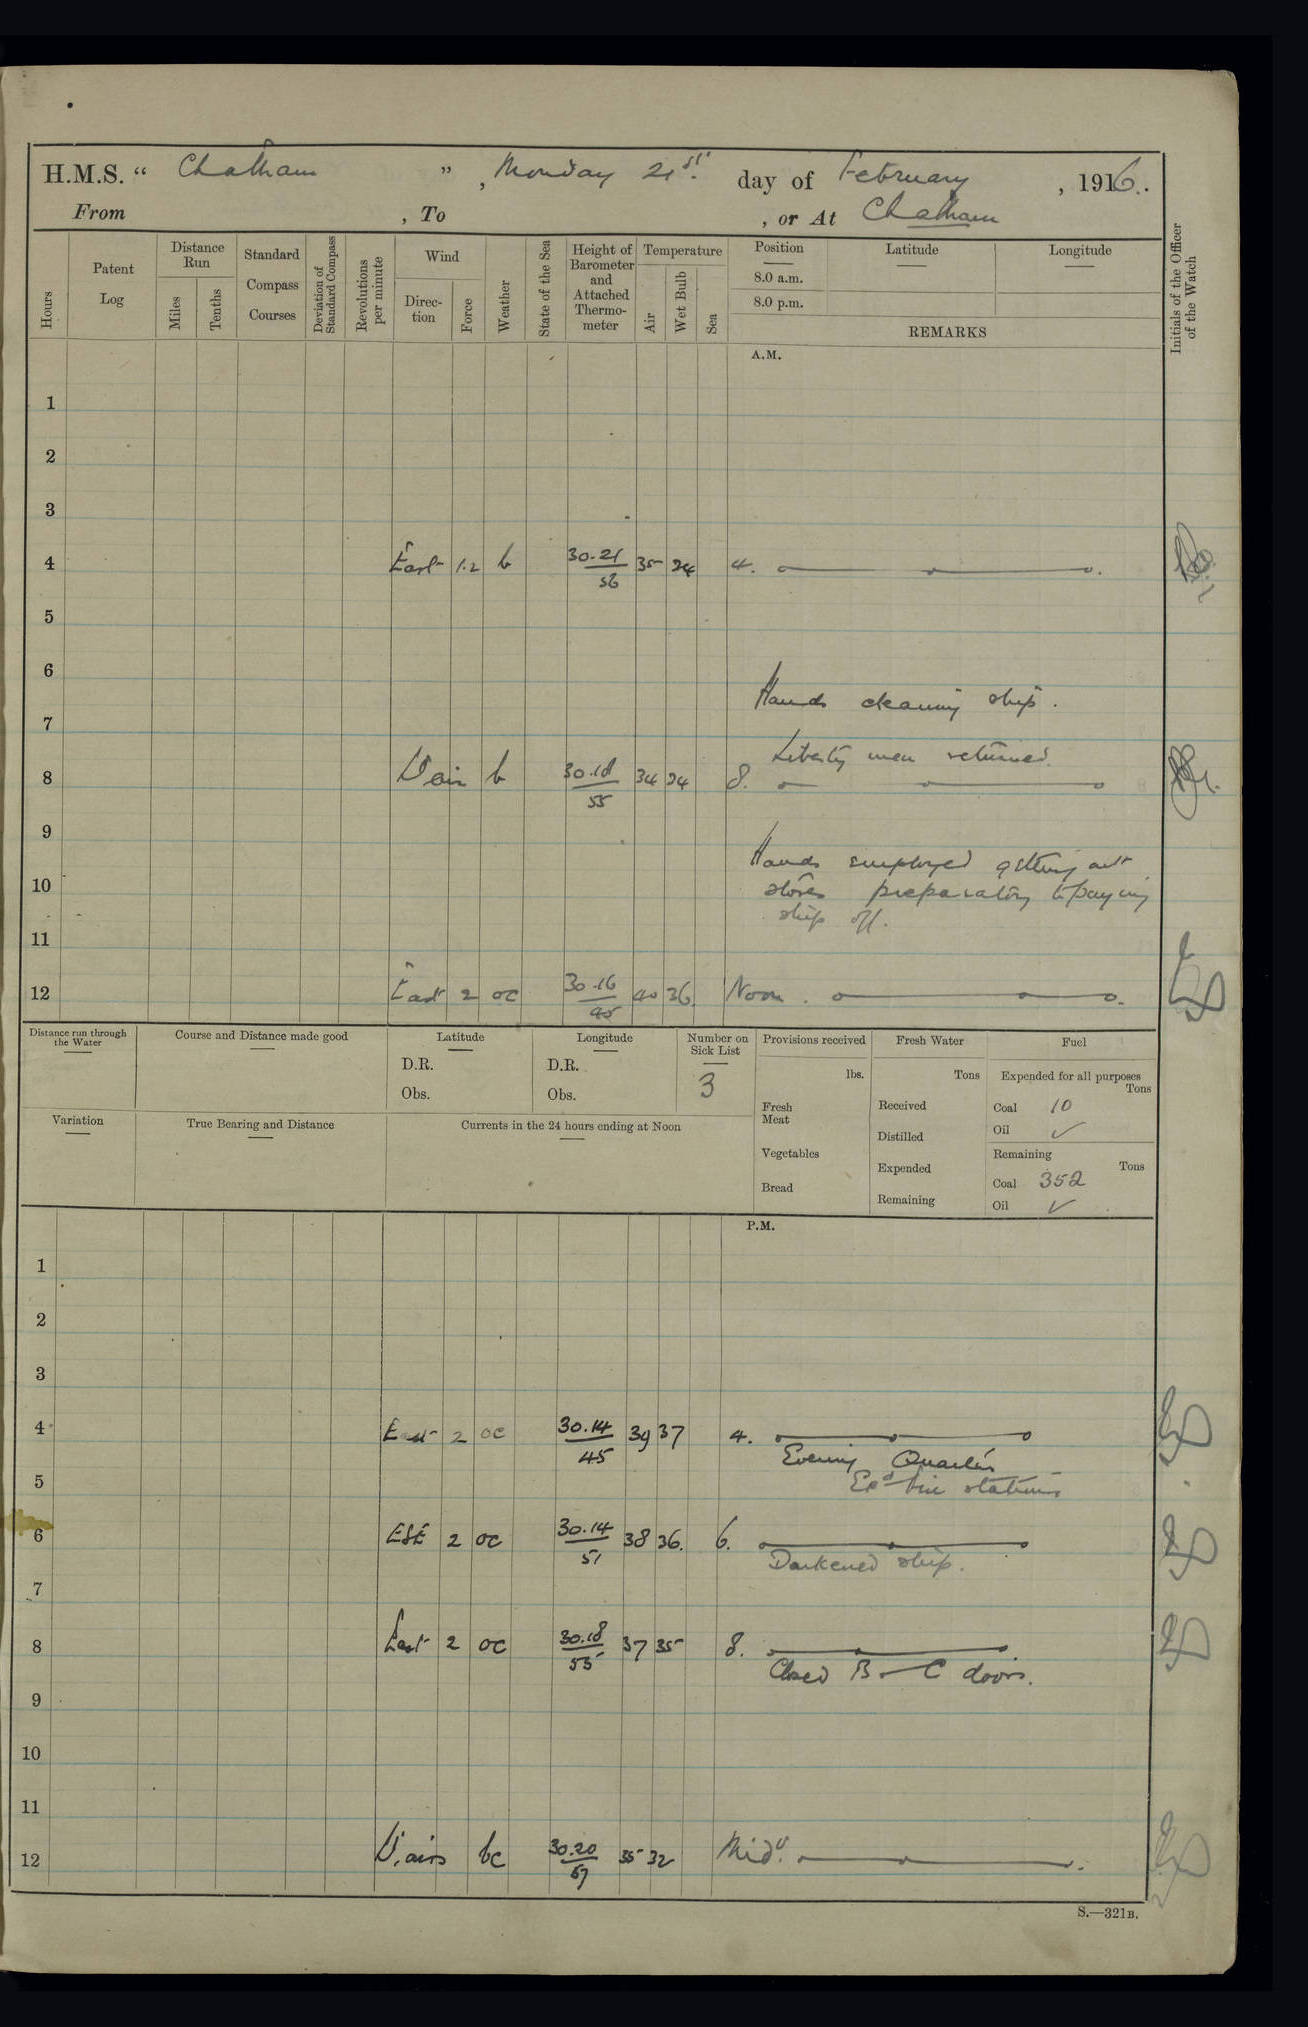 H.M.S. “ Chatham ” , Monday 21st. day of February , 1916.
From , To , or At Chatham
Hours
Patent Log
Distance Run
Miles
Tenths
Standard Compass Courses
Deviation of Standard Compass
Revolutions per minute
Wind
Direction
Force
Weather
State of the Sea
Height of Barometer and Attached Thermometer
Temperature
Air
Wet Bulb
Sea
Position Latitude Longitude
8.0 a.m.
8.0 p.m.
REMARKS
Initials of the Officer of the Watch
A.M.
1
2
3
4 East 1.2 b 30.21 56 35 4.
5
6
Hands cleaning ship.
7
Liberty men returned.
8 V air b 30.18 55 34 8.
9
Hands employed getting out
10 stores preparatory to paying
ship off.
11
12 East 2 oc 30.16 45 40 36 Noon.
Distance run through the Water
Course and Distance made good
Latitude
D.R.
Obs.
Longitude
D.R.
Obs.
Number on Sick List
3
Provisions received
lbs.
Fresh Meat
Vegetables
Bread
Fresh Water
Tons
Received
Distilled
Expended
Remaining
Fuel
Expended for all purposes
Tons
Coal 10
Oil ✓
Remaining
Tons
Coal 352
Oil ✓
Variation
True Bearing and Distance
Currents in the 24 hours ending at Noon
P.M.
1
2
3
4 East 2 oc 30.14 45 39 37 4.
Evening Quarters
5 Exd fire stations
6 ESE 2 oc 30.14 51 38 36. 6.
Darkened ship.
7
8 East 2 oc 30.18 55 37 35 8.
Closed B C doors.
9
10
11
12 V. airs bc 30.20 57 35 32 Midt.
S.—321B.